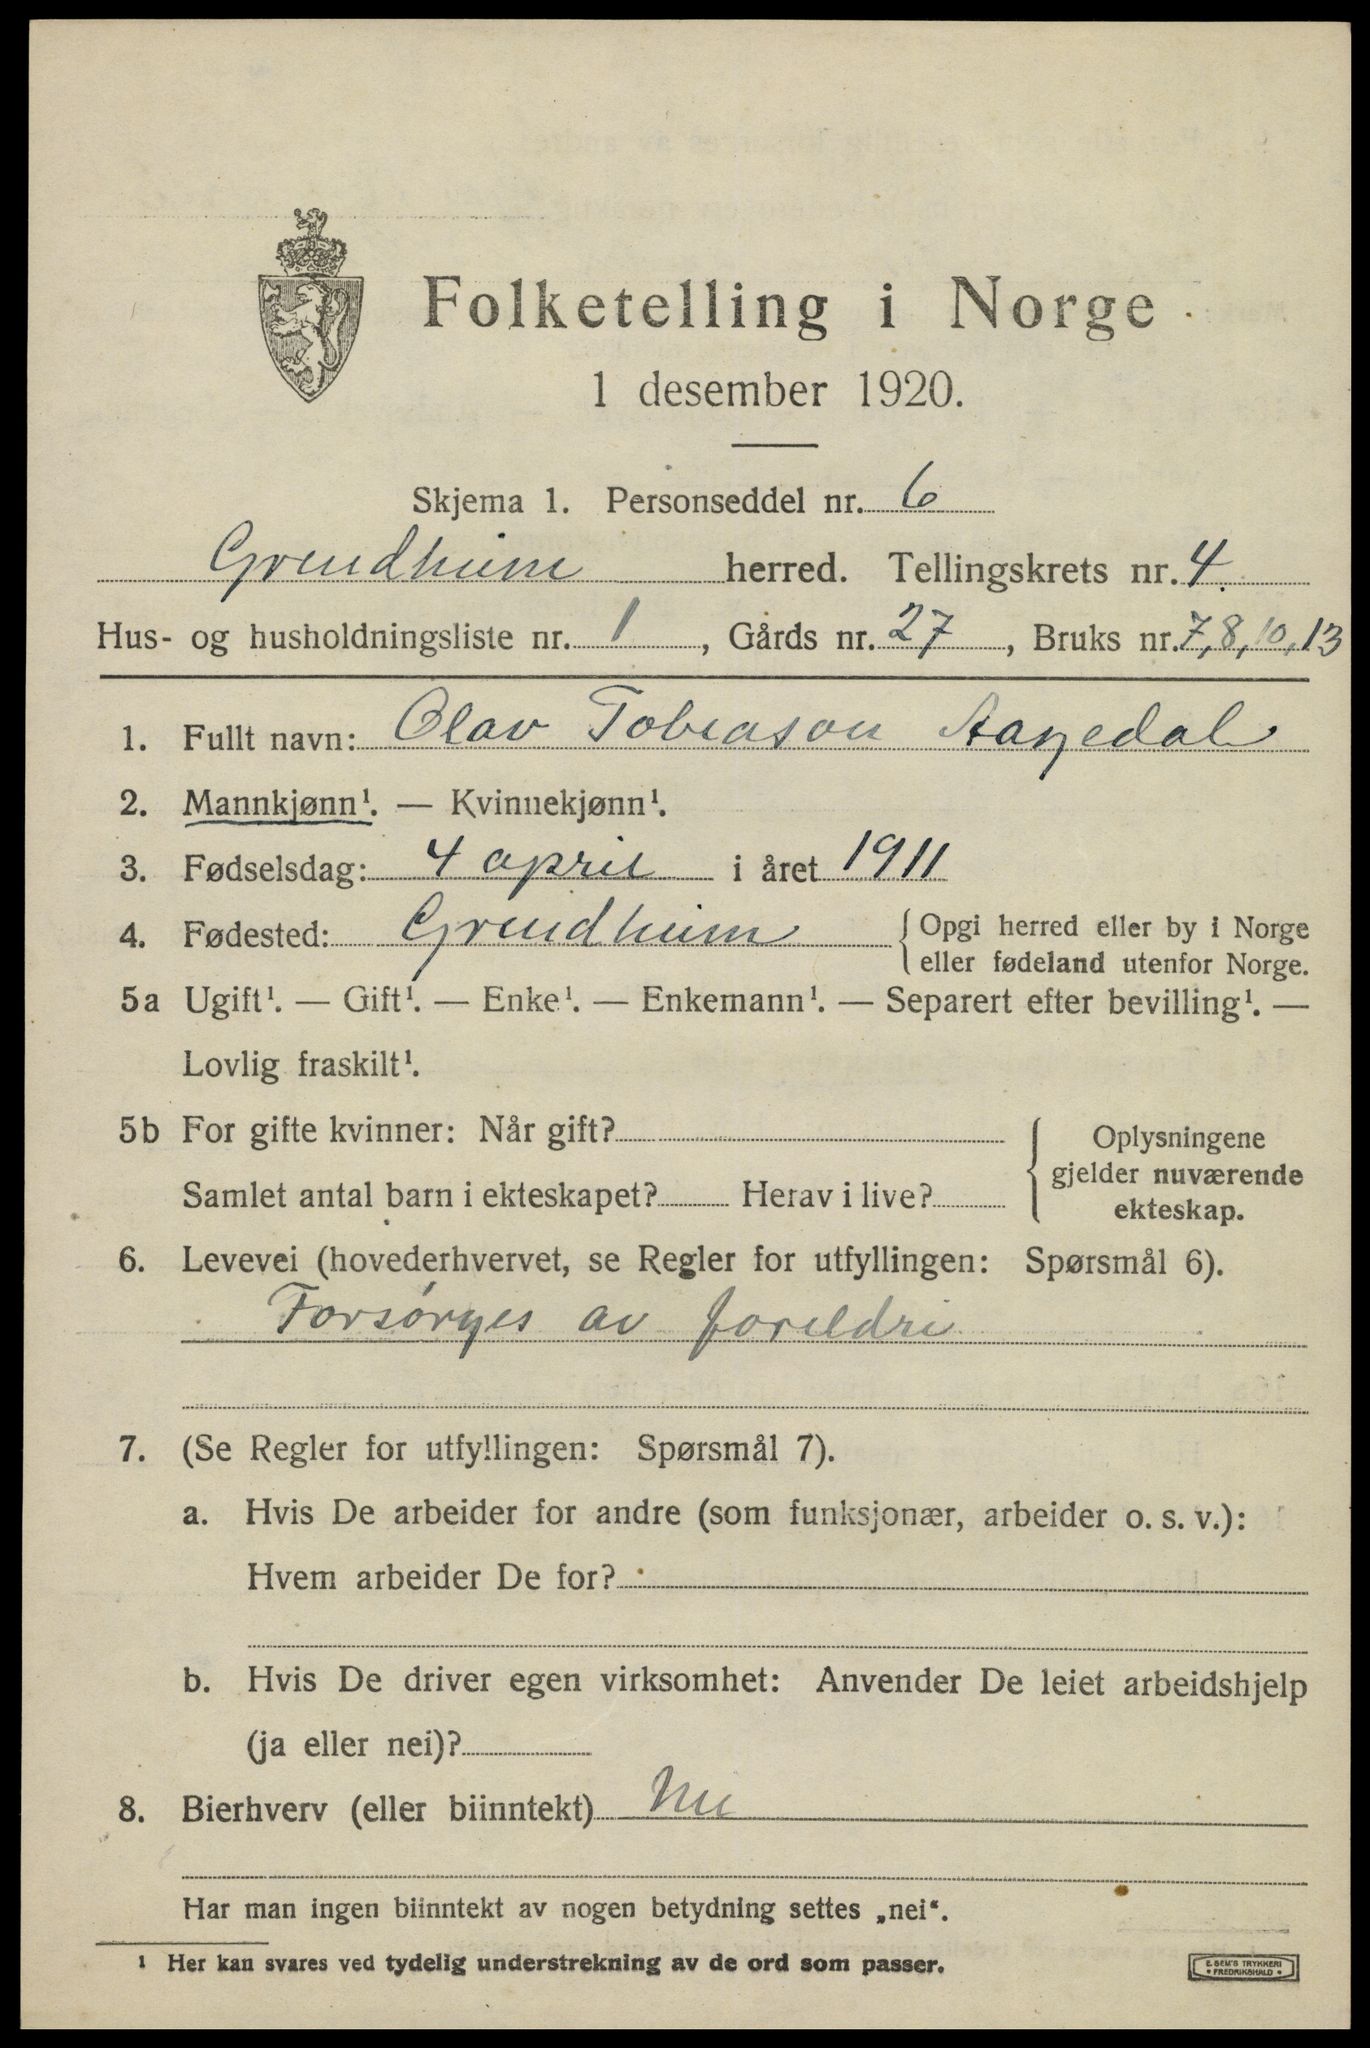 Folketelling i Norge
1 desember 1920.
Skjema 1. Personseddel nr. 6
Grendheim herred. Tellingskrets nr. 4.
Hus- og husholdningsliste nr. 1, Gårds nr. 27, Bruks nr. 7, 8, 10, 13
1. Fullt navn: Olav Tobiason Aagedal
2. Mannkjønn¹. — Kvinnekjønn¹.
3. Fødselsdag: 4 april i året 1911
4. Fødested: Grendheim { Opgi herred eller by i Norge
eller fødeland utenfor Norge.
5a Ugift¹. — Gift¹. — Enke¹. — Enkemann¹. — Separert efter bevilling¹. —
Lovlig fraskilt¹.
5b For gifte kvinner: Når gift? { Oplysningene
gjelder nuværende
Samlet antal barn i ekteskapet? Herav i live?
ekteskap.
6. Levevei (hovederhvervet, se Regler for utfyllingen: Spørsmål 6).
Forsørges av foreldre
7. (Se Regler for utfyllingen: Spørsmål 7).
a. Hvis De arbeider for andre (som funksjonær, arbeider o. s. v.):
Hvem arbeider De for?
b. Hvis De driver egen virksomhet: Anvender De leiet arbeidshjelp
(ja eller nei)?
8. Bierhverv (eller biinntekt) Nei
Har man ingen biinntekt av nogen betydning settes „nei“.
¹ Her kan svares ved tydelig understrekning av de ord som passer.
E. SEM'S TRYKKERI
• FREDRIKSHALD •